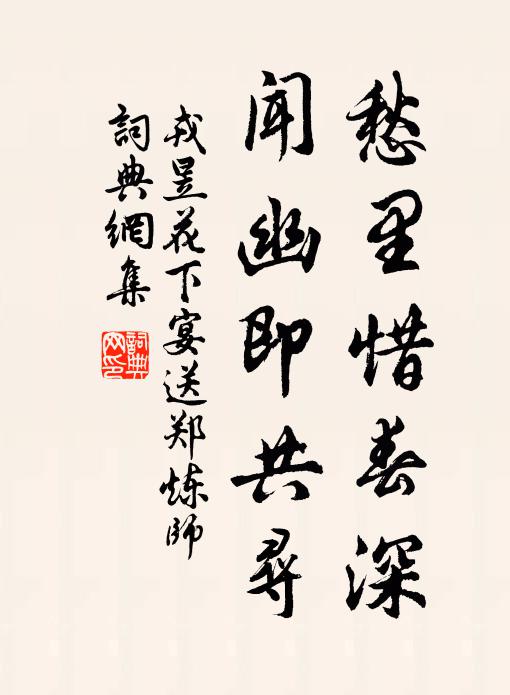 愁里惜春深
闻幽即共寻
戎昱花下宴送郑炼师
詞典網集
詞典網印